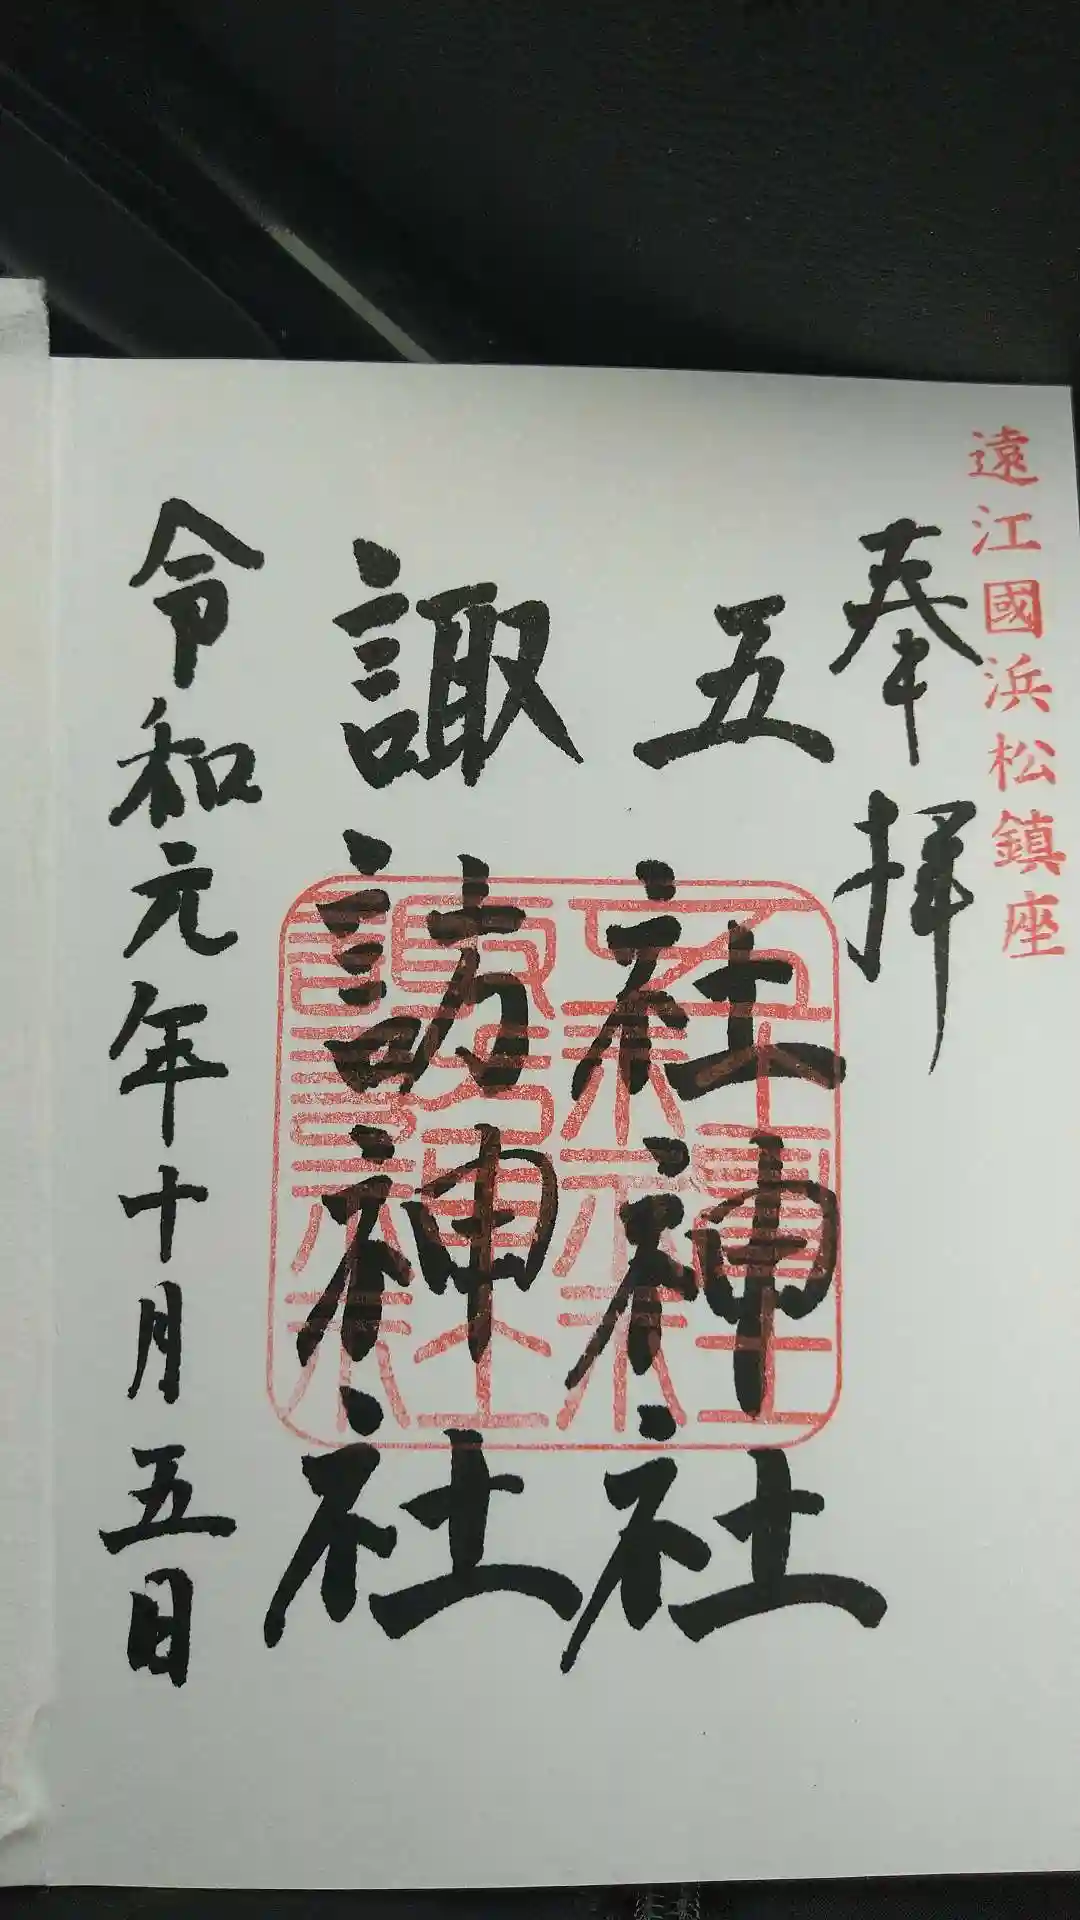 遠江國浜松鎮座
奉拝
五社神社
諏訪神社
令和元年十月五日
五社神社
諏訪神社